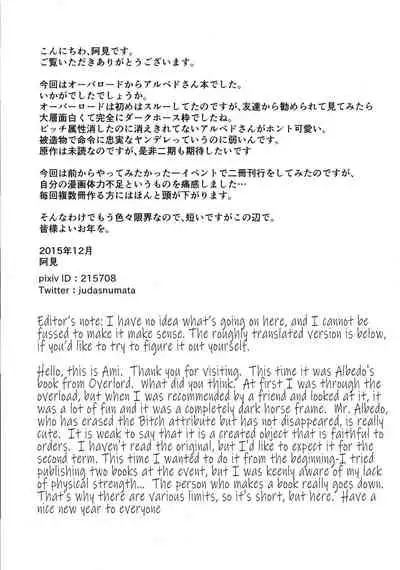 こんにちわ、阿見です。
ご覧いただきありがとうございます。
今回はオーバロードからアルベドさん本でした。
いかがでしたでしょうか。
オーバーロードは初めはスルーしてたのですが、友達から勧められて見てみたら
大層面白くて完全にダークホース枠でしたね。
ビッチ属性消したのに消えきれてないアルベドさんがホント可愛い。
被造物で命令に忠実なヤンデレっていうのに弱いんです。
原作は未読なのですが、是非二期も期待したいです
今回は前からやってみたかった一イベントで二冊刊行をしてみたのですが、
自分の漫画体力不足というものを痛感しました…
毎回複数冊作る方にはほんと頭が下がります。
そんなわけでもう色々限界なので、短いですがこの辺で。
皆様よいお年を。
2015年12月
阿見
pixiv ID : 215708
Twitter : judasnumata
Editor's note: I have no idea what's going on here, and I cannot be
fussed to make it make sense. The roughly translated version is below,
if you'd like to try to figure it out yourself.
Hello, this is Ami. Thank you for visiting. This time it was Albedo's
book from Overlord. What did you think. At first I was through the
overload, but when I was recommended by a friend and looked at it, it
was a lot of fun and it was a completely dark horse frame. Mr. Albedo,
who has erased the Bitch attribute but has not disappeared, is really
cute. It is weak to say that it is a created object that is faithful to
orders. I haven't read the original, but I'd like to expect it for the
second term. This time I wanted to do it from the beginning-I tried
publishing two books at the event, but I was keenly aware of my lack
of physical strength... The person who makes a book really goes down.
That's why there are various limits, so it's short, but here. Have a
nice new year to everyone